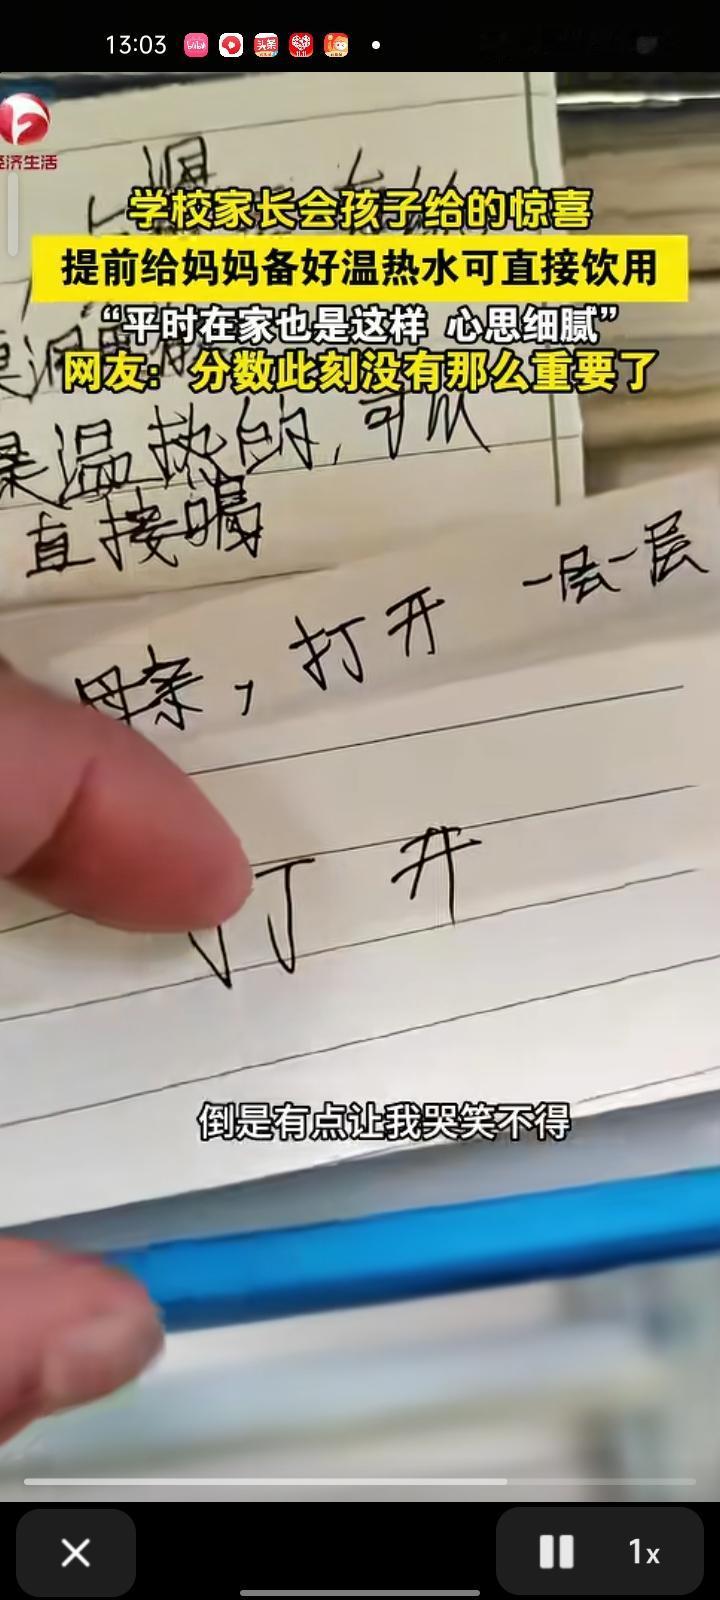 13:03
经济生活
学校家长会孩子给的惊喜
提前给妈妈备好温热水可直接饮用
“平时在家也是这样 心思细腻”
网友：分数此刻没有那么重要了
温热的，可以
直接喝
母亲，打开 一层一层
打开
倒是有点让我哭笑不得
1x